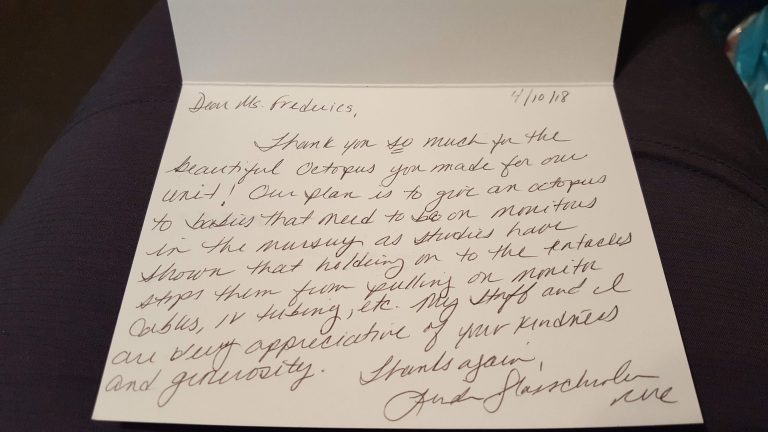 Dear Ms. Frederics, 4/10/18
Thank you so much for the
beautiful Octopus you made for our
unit! Our plan is to give an octopus
to babies that need to be on monitors
in the nursery as studies have
shown that holding on to the tentacles
stops them from pulling on monitor
cables, IV tubing, etc. My staff and I
are very appreciative of your kindness
and generosity. Thanks again,